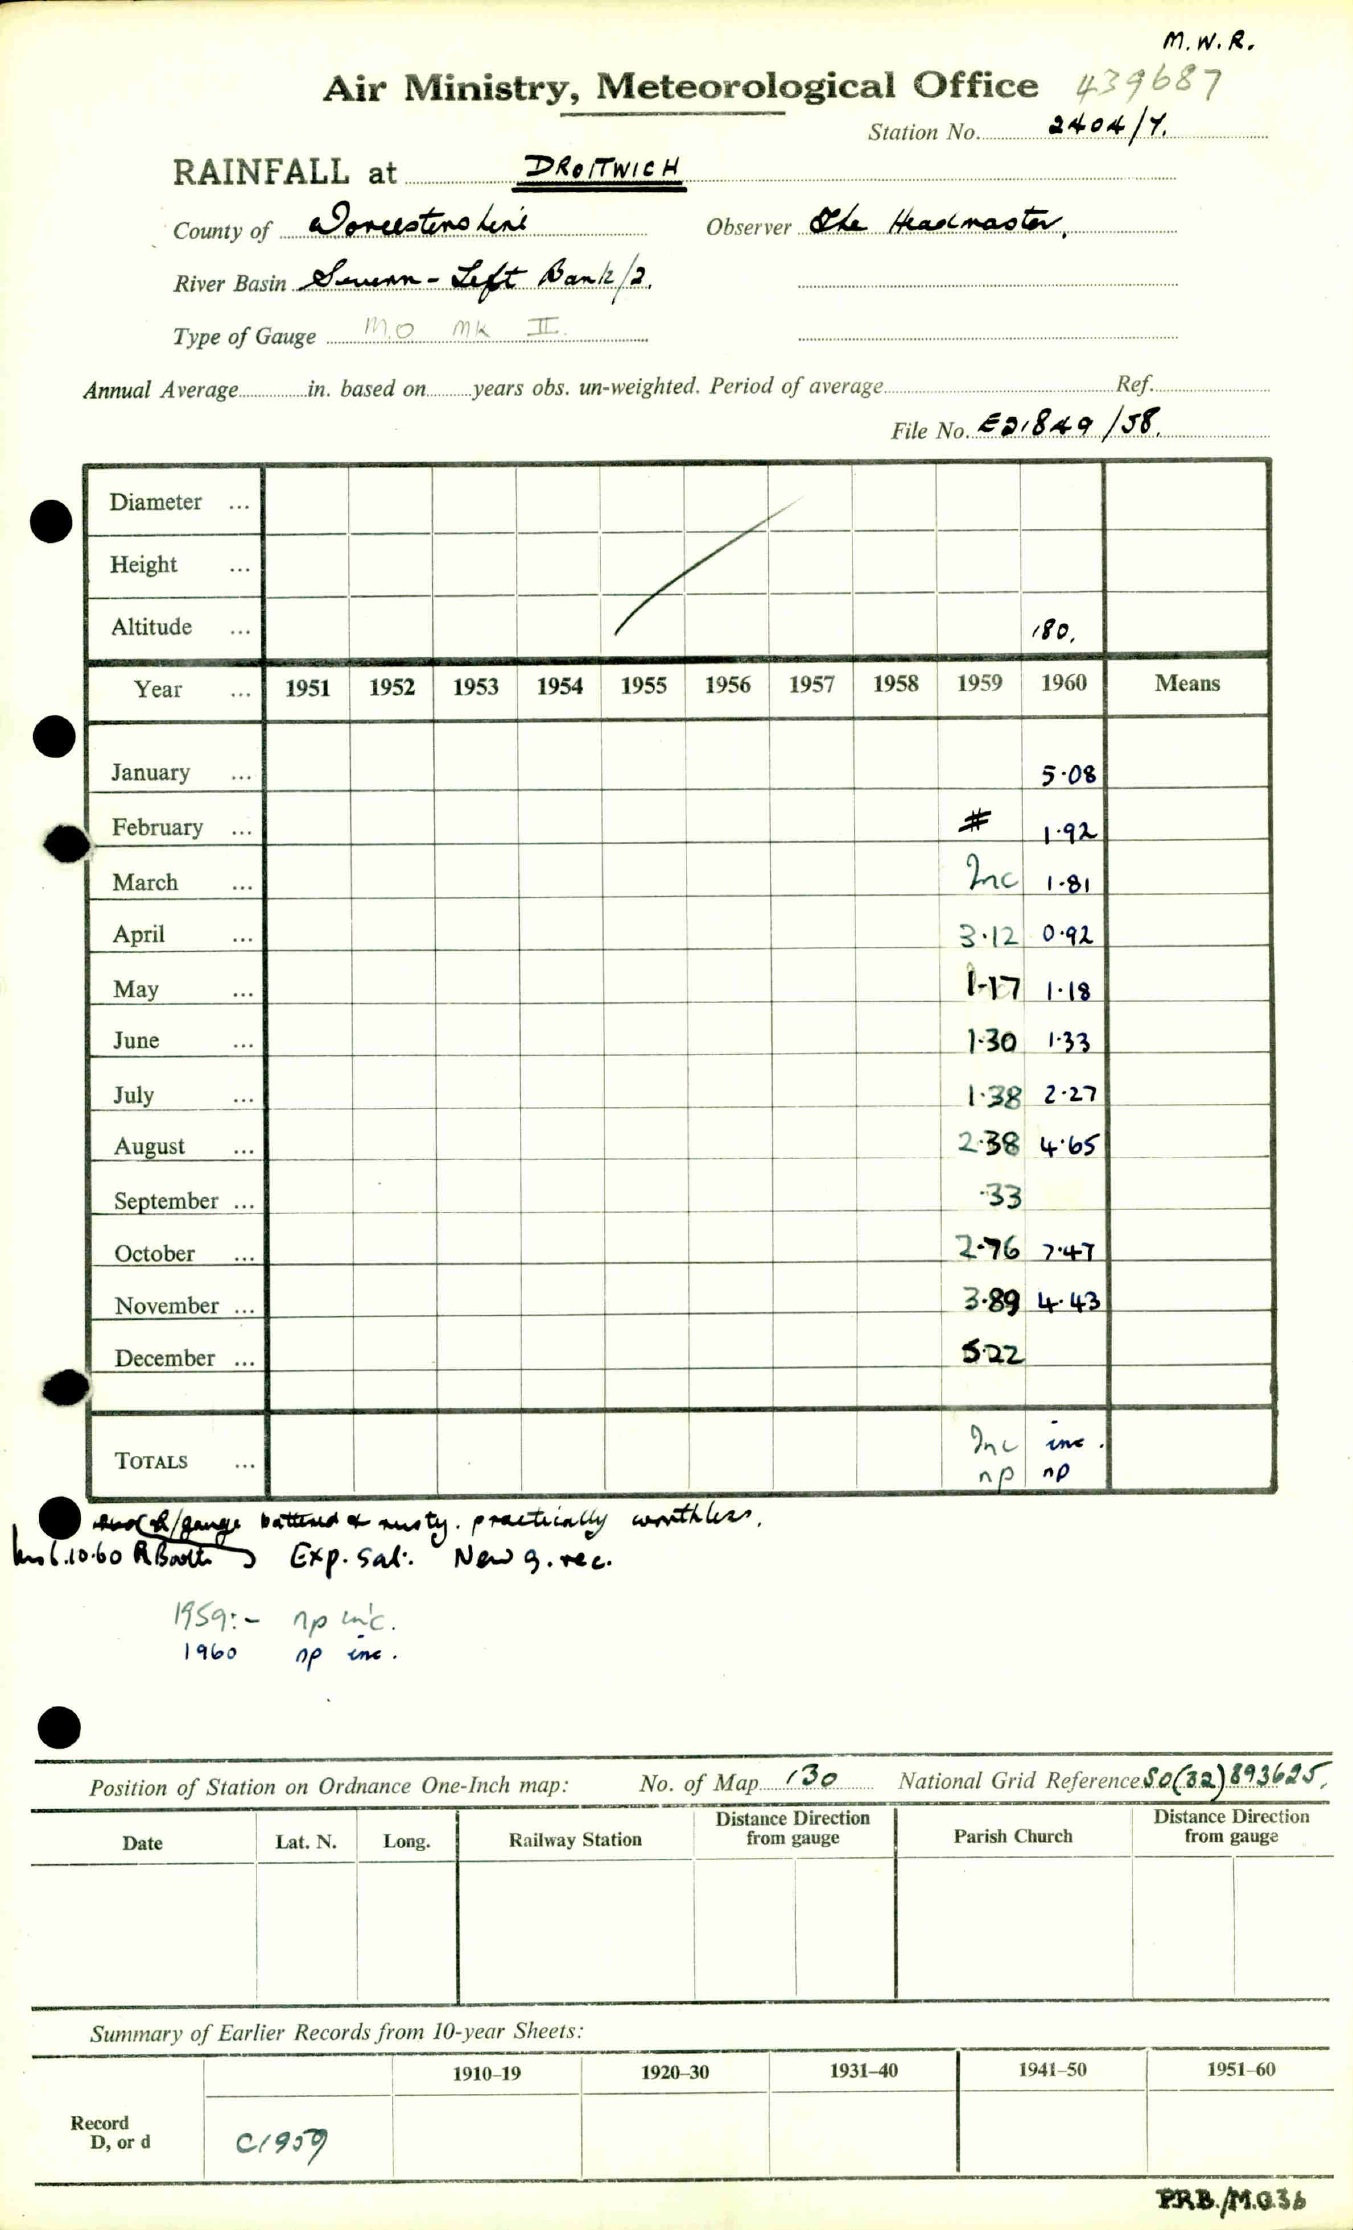 M.W.R.
Air Ministry, Meteorological Office 439687
Station No. 2404/7.
RAINFALL at DROITWICH
County of Worcestershire Observer The Headmaster,
River Basin Severn - Left Bank/2.
Type of Gauge M.O MK II.
Annual Average in. based on years obs. un-weighted. Period of average Ref.
File No. E21849/58.
Diameter ...
Height ...
Altitude ... 180.
Year ... 1951 1952 1953 1954 1955 1956 1957 1958 1959 1960 Means
January ... 5·08
February ... # 1·92
March ... Inc 1·81
April ... 3·12 0·92
May ... 1·17 1·18
June ... 1·30 1·33
July ... 1·38 2·27
August ... 2·38 4·65
September ... ·33
October ... 2·76 7·47
November ... 3·89 4·43
December ... 5·22
TOTALS ... Inc inc.
np np
/gauge battered & rusty. practically worthless.
6.10.60 R Booth Exp. sat. New g. rec.
1959:- np inc.
1960 np inc.
Position of Station on Ordnance One-Inch map: No. of Map 130 National Grid Reference SO(32)893625.
Date Lat. N. Long. Railway Station Distance Direction from gauge Parish Church Distance Direction from gauge
Summary of Earlier Records from 10-year Sheets:
1910–19 1920–30 1931–40 1941–50 1951–60
Record
D, or d C1959
P.R.B./M.O.36